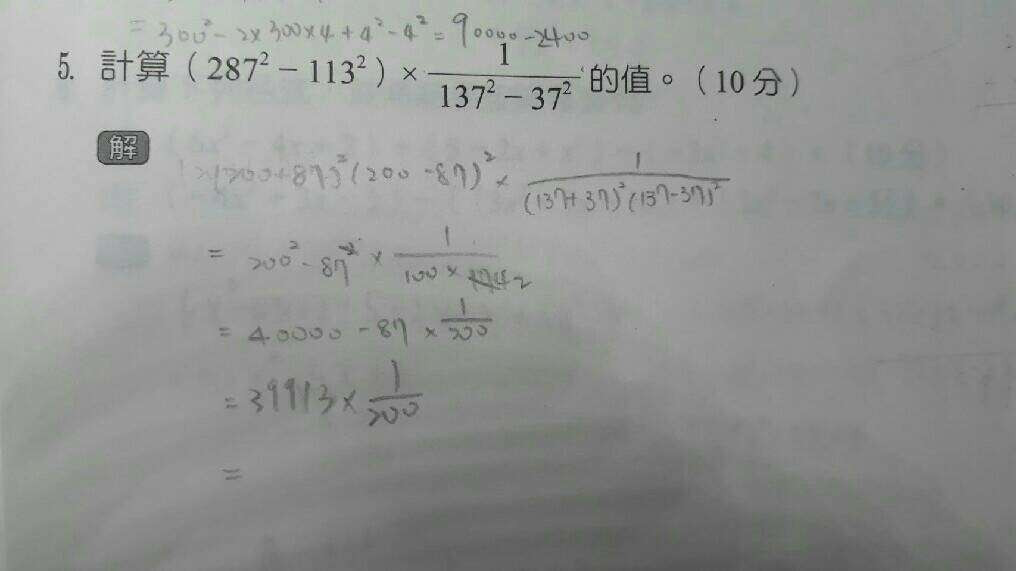 = 300² - 2×300×4 + 4² - 4² = 90000 - 2400
5. 計算(287² - 113²) × 1/(137² - 37²) 的值。(10分)
解
(200+87)²(200-87)² × 1/((137+37)²(137-37)²)
= 200² - 87² × 1/(100 × 2)
= 40000 - 87 × 1/200
= 39913 × 1/200
=